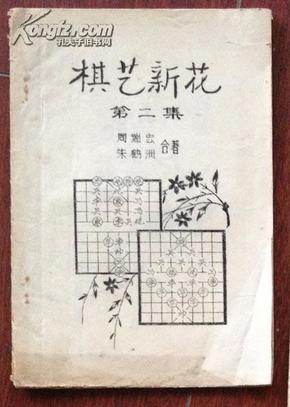 Kongfz.com
孔夫子旧书网
棋艺新花
第二集
周瑞宏
朱鹤洲
合著